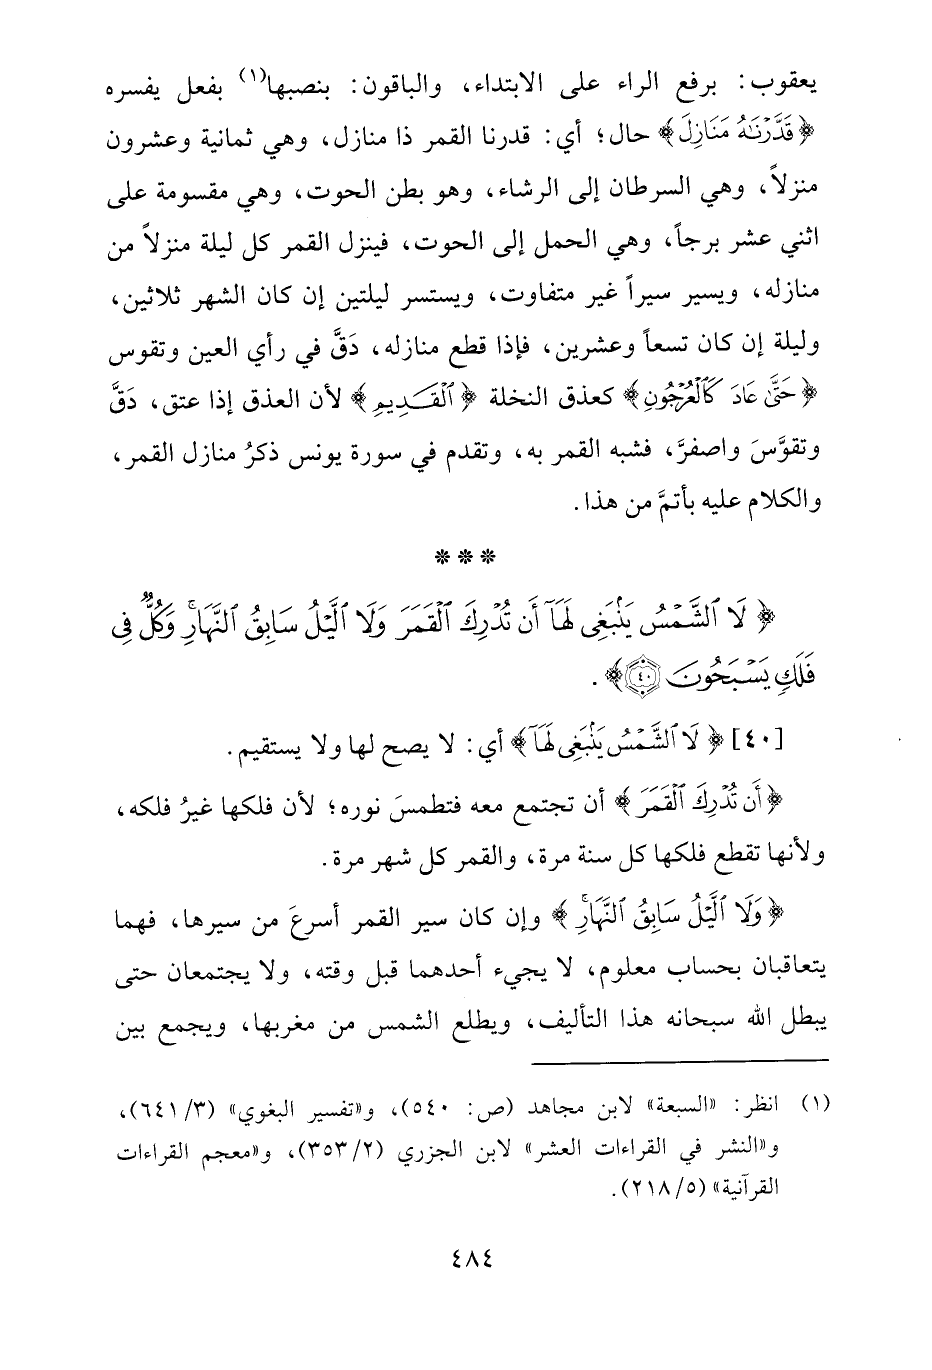 يعقوب: برفع الراء على الابتداء، والباقون: بنصبها(١) بفعل يفسره
﴿قَدَّرْنَٰهُ مَنَازِلَ﴾ حال؛ أي: قدرنا القمر ذا منازل، وهي ثمانية وعشرون
منزلاً، وهي السرطان إلى الرشاء، وهو بطن الحوت، وهي مقسومة على
اثني عشر برجاً، وهي الحمل إلى الحوت، فينزل القمر كل ليلة منزلاً من
منازله، ويسير سيراً غير متفاوت، ويستسر ليلتين إن كان الشهر ثلاثين،
وليلة إن كان تسعاً وعشرين، فإذا قطع منازله، دَقَّ في رأي العين وتقوس
﴿حَتَّىٰ عَادَ كَٱلْعُرْجُونِ﴾ كعذق النخلة ﴿ٱلْقَدِيمِ﴾ لأن العذق إذا عتق، دَقَّ
وتقوَّسَ واصفرَّ، فشبه القمر به، وتقدم في سورة يونس ذكرُ منازل القمر،
والكلام عليه بأتمَّ من هذا.
***
﴿لَا ٱلشَّمْسُ يَنۢبَغِى لَهَآ أَن تُدْرِكَ ٱلْقَمَرَ وَلَا ٱلَّيْلُ سَابِقُ ٱلنَّهَارِ ۚ وَكُلٌّ فِى
فَلَكٍ يَسْبَحُونَ ٤٠﴾.
[٤٠] ﴿لَا ٱلشَّمْسُ يَنۢبَغِى لَهَآ﴾ أي: لا يصح لها ولا يستقيم.
﴿أَن تُدْرِكَ ٱلْقَمَرَ﴾ أن تجتمع معه فتطمسَ نوره؛ لأن فلكها غيرُ فلكه،
ولأنها تقطع فلكها كل سنة مرة، والقمر كل شهر مرة.
﴿وَلَا ٱلَّيْلُ سَابِقُ ٱلنَّهَارِ ۚ﴾ وإن كان سير القمر أسرعَ من سيرها، فهما
يتعاقبان بحساب معلوم، لا يجيء أحدهما قبل وقته، ولا يجتمعان حتى
يبطل الله سبحانه هذا التأليف، ويطلع الشمس من مغربها، ويجمع بين
(١) انظر: «السبعة» لابن مجاهد (ص: ٥٤٠)، و«تفسير البغوي» (٣/ ٦٤١)،
و«النشر في القراءات العشر» لابن الجزري (٢/ ٣٥٣)، و«معجم القراءات
القرآنية» (٥/ ٢١٨).
٤٨٤